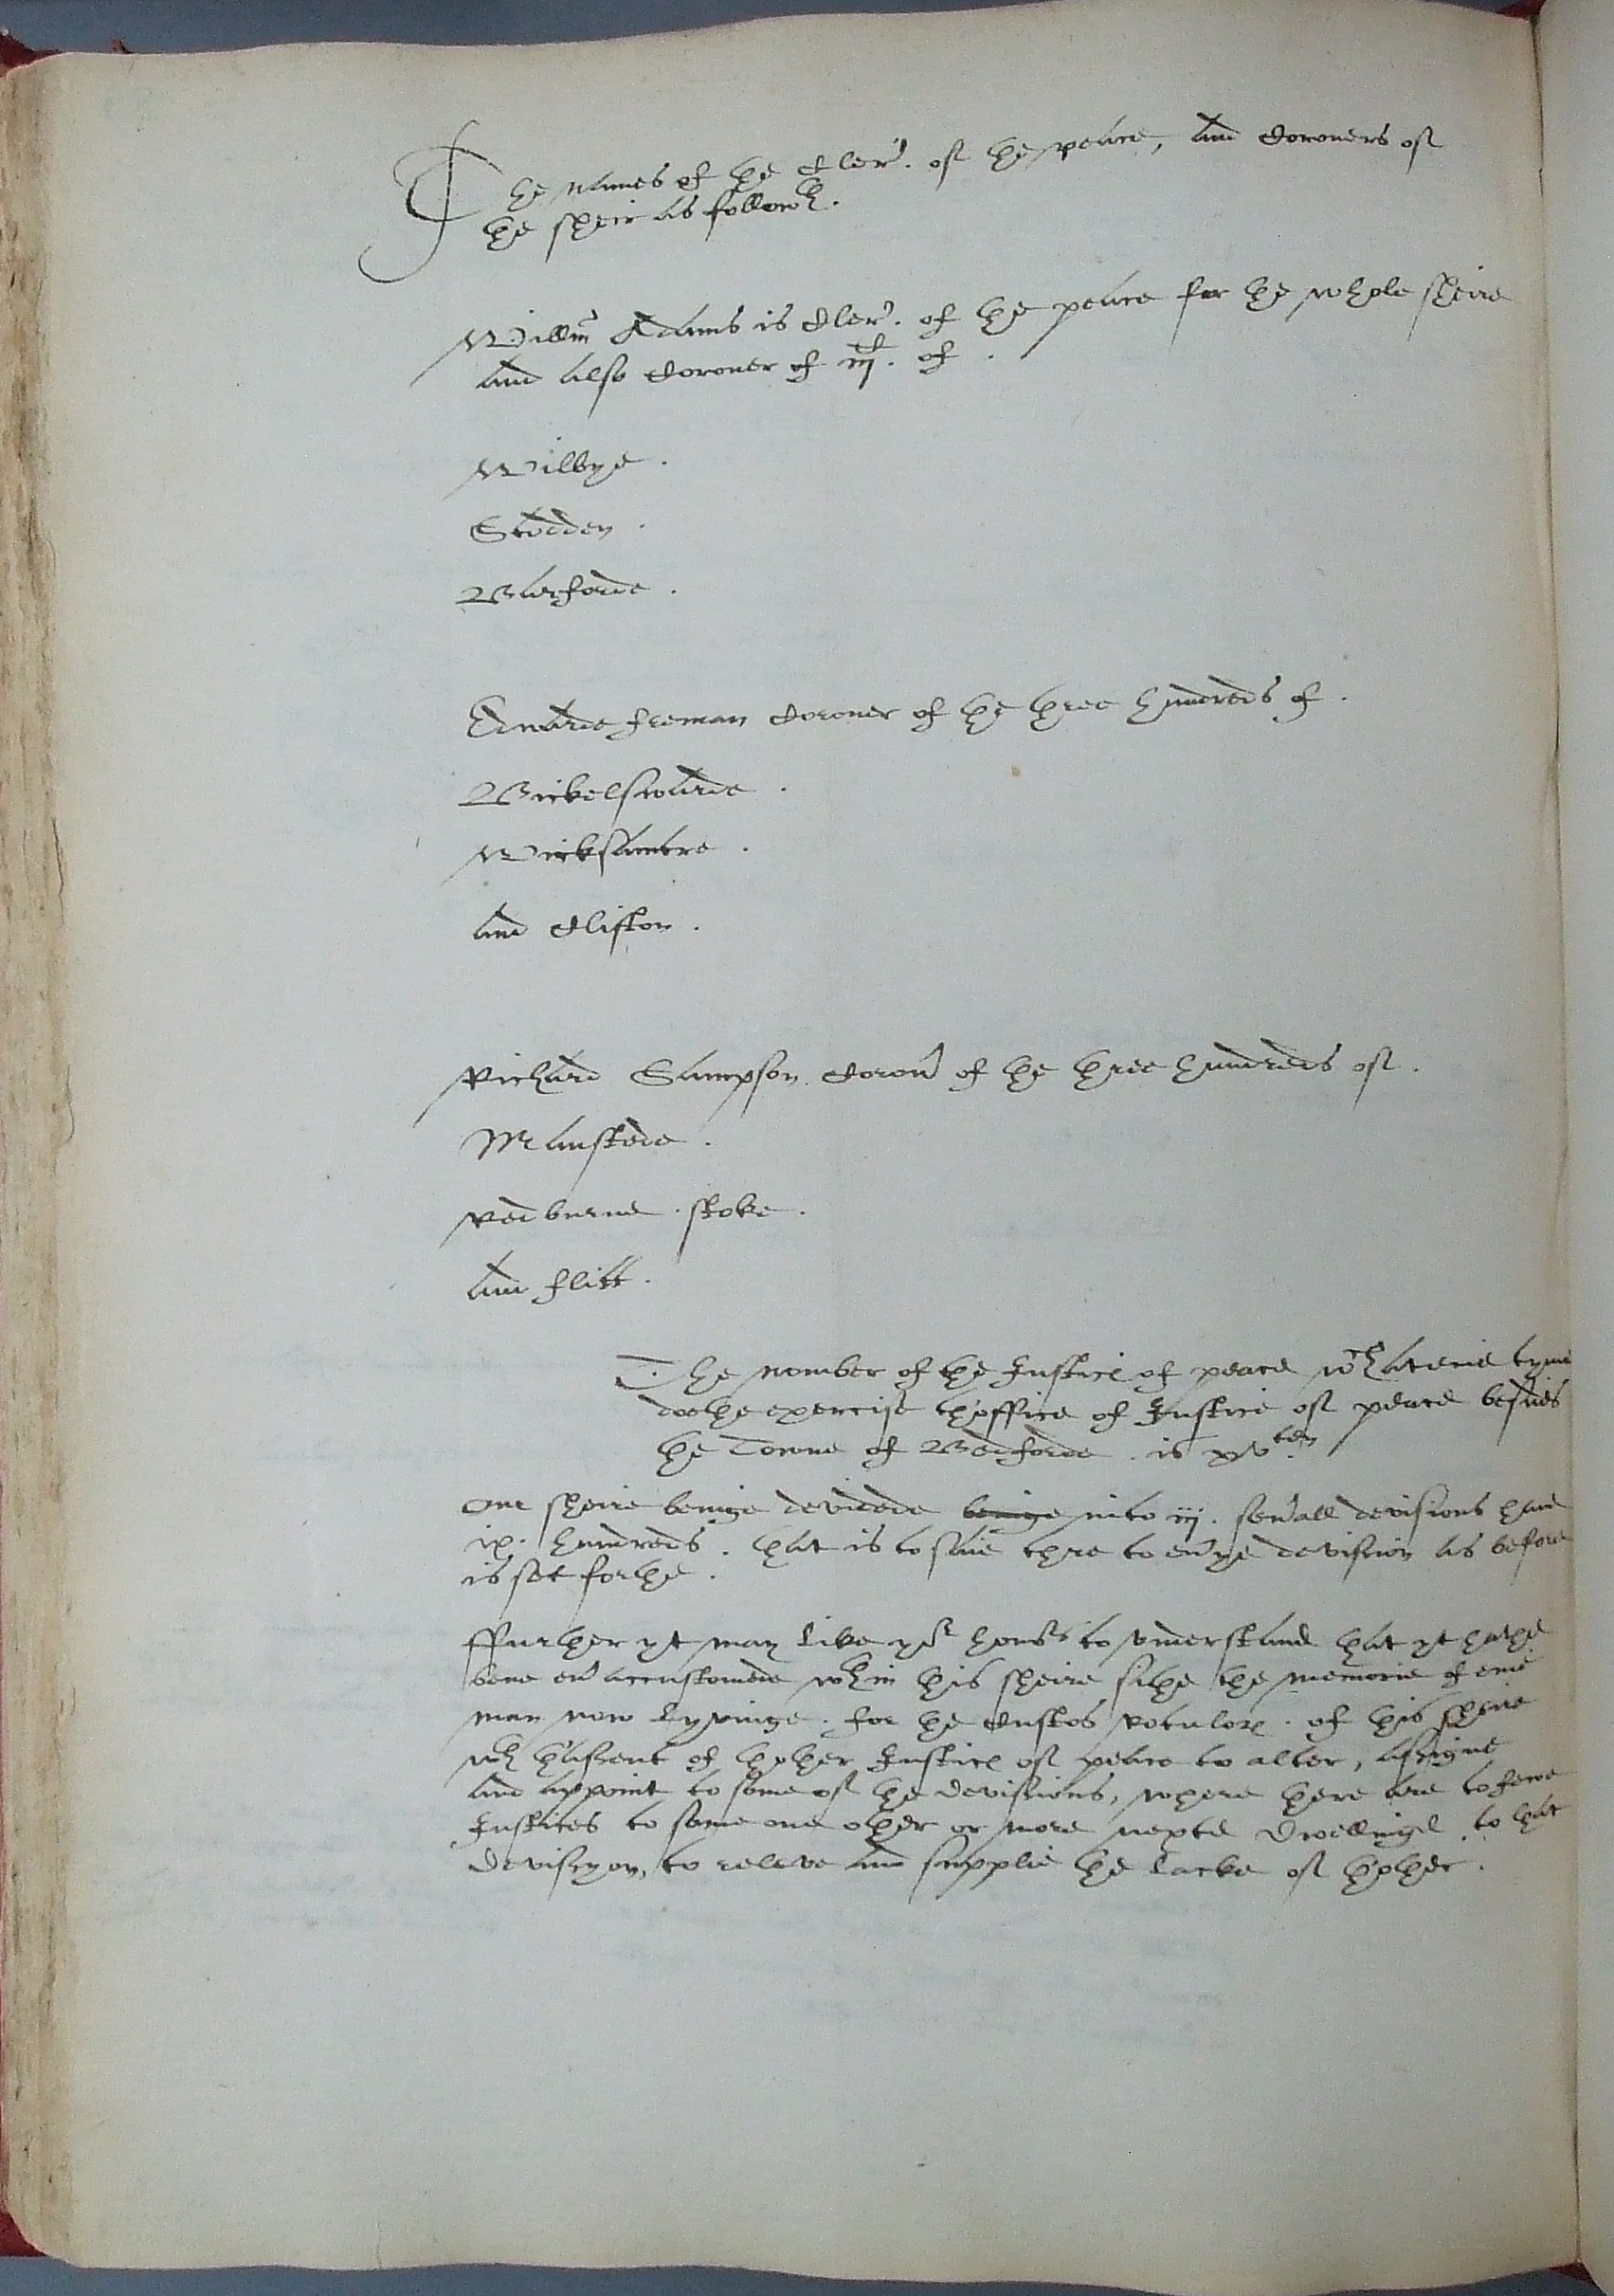 The names of the Cler'. of the peace, and Coroners of
the sheir as followth.
Willm Adams is Cler'. of the peace for the whole sheire
and also Coroner of iij. of .
Wilbye .
Stodden .
Barforde .
Edwarde freman Coroner of the three hundreds of .
Bickelswarde .
Wicksamtre .
and Clifton .
Richard Sampson Coron' of the three hundreds of .
Manshede .
Redburne . stoke .
and flitt .
The nomber of the Justic of peace wch at enie tyme
doethe exercise th'office of Justice of peace besides
the Towne of Bedforde . is xv ten
Our sheire beinge devidede beinge into iij . seu'all devisions have
ix . hundreds . that is to saie thre to eu'ye devision as before
is set forthe .
ffurther yt may like yor honors to understand that yt hathe
bene eu' accustomede wth in this sheire sithe the memorie of enie
man now lyvinge . for the Custos rotulor . of this sheire
wth th'assent of thother Justic of peace to alter, assigne
and appoint to some of the devisions, where there are to fewe
Justices to some one other or more nexte dwellinge to that
devisyon, to releve and supplie the lacke of thother .